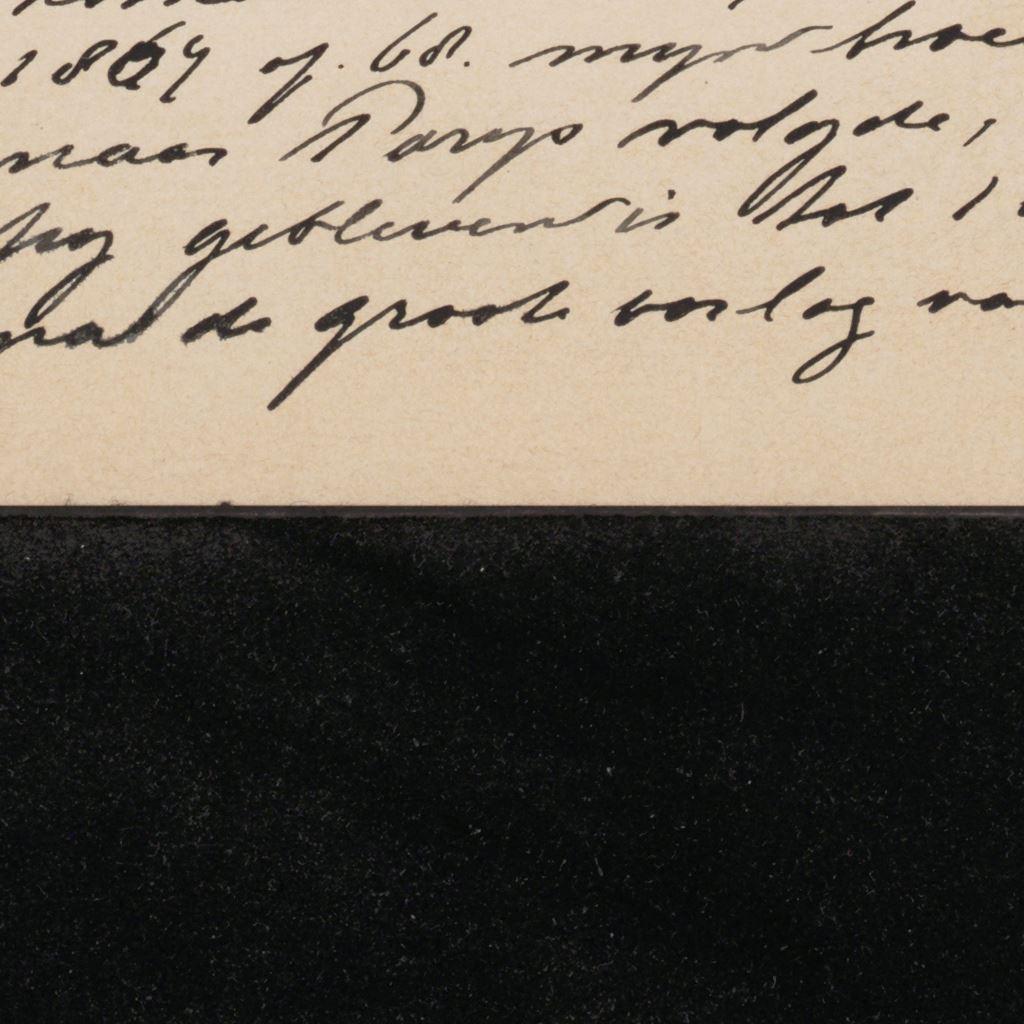 1867 of 68. myn broe
naar Parys volgde,
hy gebleven is tot 1
na de groote oorlog va